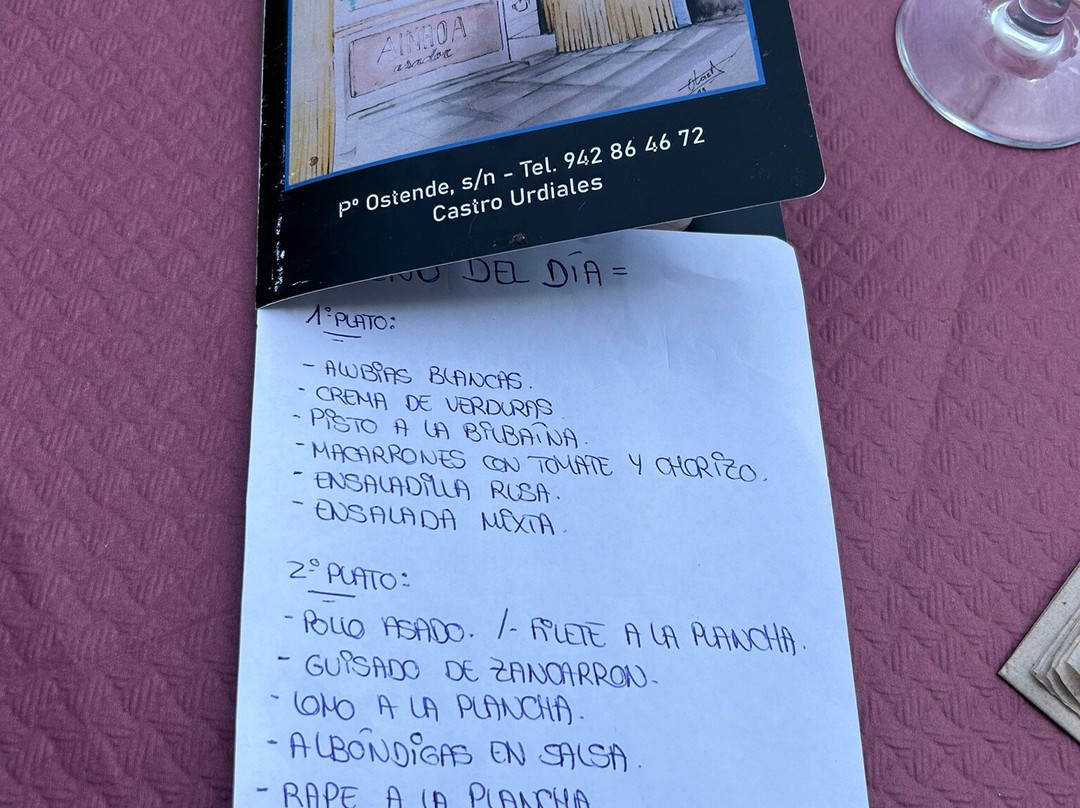 AINHOA
asador
Pº Ostende, s/n - Tel. 942 86 46 72
Castro Urdiales
DEL DÍA =
1º PLATO:
- ALUBIAS BLANCAS.
- CREMA DE VERDURAS
- PISTO A LA BILBAÍNA.
- MACARRONES CON TOMATE Y CHORIZO.
- ENSALADILLA RUSA.
- ENSALADA MIXTA.
2º PLATO:
- POLLO ASADO. /- FILETE A LA PLANCHA.
- GUISADO DE ZANCARRON.
- LOMO A LA PLANCHA.
- ALBÓNDIGAS EN SALSA.
- RAPE A LA PLANCHA